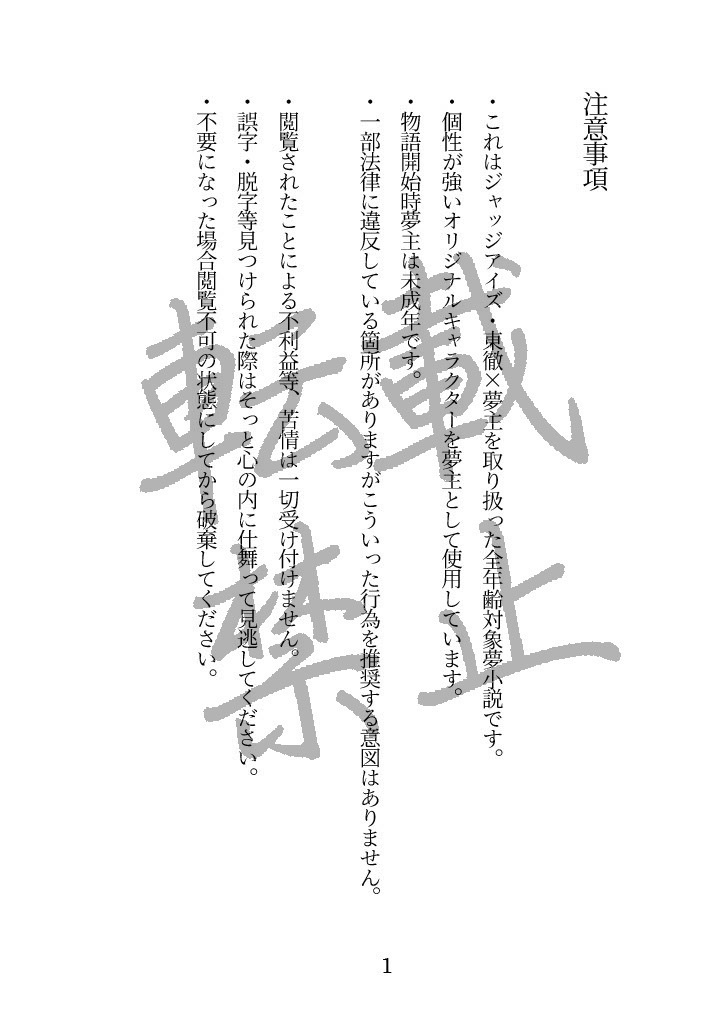 注意事項
・これはジャッジアイズ・東徹×夢主を取り扱った全年齢対象夢小説です。
・個性が強いオリジナルキャラクターを夢主として使用しています。
・物語開始時夢主は未成年です。
・一部法律に違反している箇所がありますがこういった行為を推奨する意図はありません。
・閲覧されたことによる不利益等、苦情は一切受け付けません。
・誤字・脱字等見つけられた際はそっと心の内に仕舞って見逃してください。
・不要になった場合閲覧不可の状態にしてから破棄してください。
転載
禁止
1